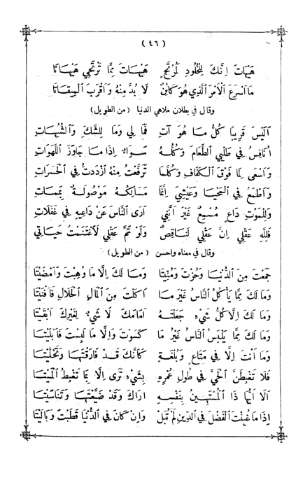 (٤٦)
هَيْهَاتَ إِنَّكَ لِلْخُلُودِ لَمُرْتَجٍ هَيْهَاتَ مِمَّا تَرْتَجِي هَيْهَاتَا
مَا أَسْرَعَ الْأَمْرَ الَّذِي هُوَ كَائِنٌ لَا بُدَّ مِنْهُ وَأَقْرَبَ الْمِيقَاتَا
وقال في بطلان ملاهي الدنيا (من الطويل)
أَلَيْسَ قَرِيبًا كُلُّ مَا هُوَ آتِ فَمَا لِي وَمَا لِلشَّكِّ وَالشُّبُهَاتِ
أُنَافِسُ فِي طِيبِ الطَّعَامِ وَكُلُّهُ سَوَاءٌ إِذَا مَا جَاوَزَ اللَّهَوَاتِ
وَأَسْعَى لِمَا فَوْقَ الْكَفَافِ وَكُلَّمَا تَرَفَّعْتُ مِنْهُ ازْدَدْتُ فِي الْحَسَرَاتِ
وَأَطْمَعُ فِي الْمَحْيَا وَعَيْشِي إِنَّمَا مَسَالِكُهُ مَوْصُولَةٌ بِمَمَاتِ
وَلِلْمَوْتِ دَاعٍ مُسْمِعٌ غَيْرَ أَنَّنِي أَرَى النَّاسَ عَنْ دَاعِيهِ فِي غَفَلَاتِ
فَلِلَّهِ عَقْلِي إِنَّ عَقْلِي لَنَاقِصٌ وَلَوْ تَمَّ عَقْلِي لَاغْتَنَمْتُ حَيَاتِي
وقال في معناه واحسن (من الطويل)
جَمَعْتَ مِنَ الدُّنْيَا وَحُزْتَ وَمُنِّيتَا وَمَا لَكَ إِلَّا مَا وَهَبْتَ وَأَمْضَيْتَا
وَمَا لَكَ مِمَّا يَأْكُلُ النَّاسُ غَيْرُ مَا أَكَلْتَ مِنَ الْمَالِ الْحَلَالِ فَأَفْنَيْتَا
وَمَا لَكَ إِلَّا كُلُّ شَيْءٍ جَعَلْتَهُ أَمَامَكَ لَا شَيْءٌ لِغَيْرِكَ أَبْقَيْتَا
وَمَا لَكَ مِمَّا يَلْبَسُ النَّاسُ غَيْرُ مَا كَسَوْتَ وَإِلَّا مَا لَبِسْتَ فَأَبْلَيْتَا
وَمَا أَنْتَ إِلَّا فِي مَتَاعٍ وَبُلْغَةٍ كَأَنَّكَ قَدْ فَارَقْتَهَا وَتَخَلَّيْتَا
فَلَا تَغْبِطَنَّ الْحَيَّ فِي طُولِ عُمْرِهِ بِشَيْءٍ تَرَى إِلَّا بِمَا تَغْبِطُ الْمَيْتَا
أَلَا أَيُّهَا ذَا الْمُسْتَهِينُ بِنَفْسِهِ أَرَاكَ وَقَدْ ضَيَّعْتَهَا وَتَنَاسَيْتَا
إِذَا مَا غُبِنْتَ الْفَضْلَ فِي الدِّينِ لَمْ تُبَلْ وَإِنْ كَانَ فِي الدُّنْيَا قَطَبْتَ وَبَالَيْتَا